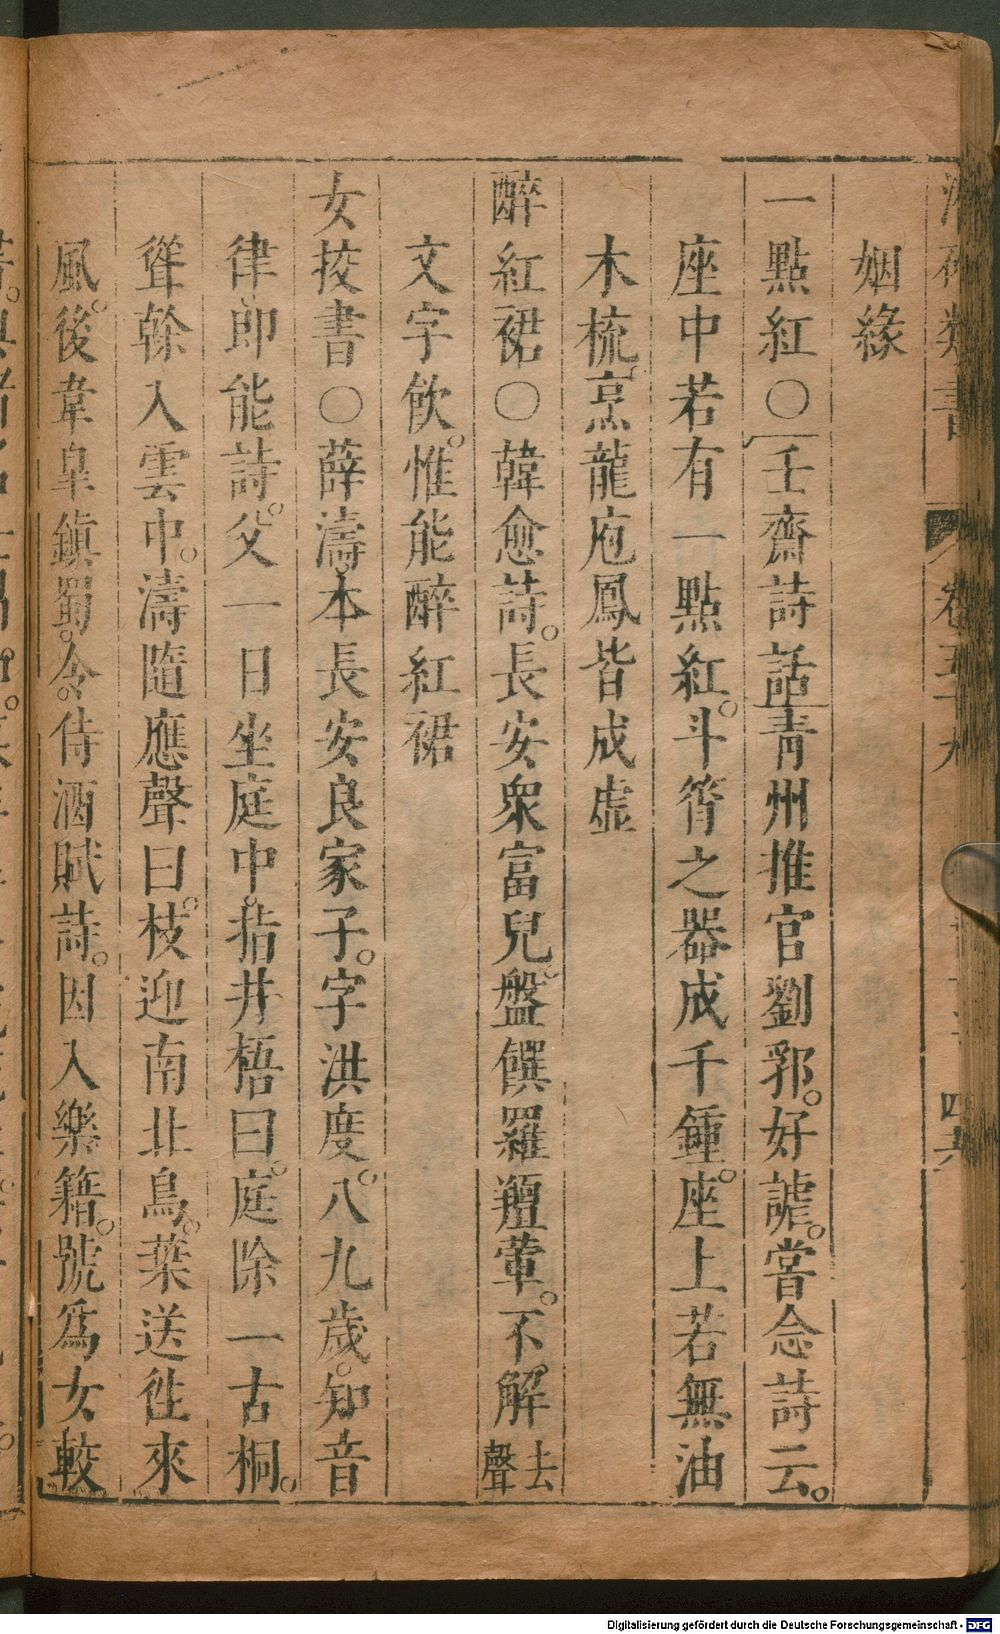 姻緣
一點紅○壬齋詩話青州推官劉郛。好謔。嘗念詩云。
座中若有一點紅。斗筲之器成千鍾。座上若無油
木梳。烹龍庖鳳皆成虛
醉紅裙○韓愈詩。長安衆富兒。盤饌羅羶葷。不解去聲
文字飲。惟能醉紅裙
女挍書○薛濤本長安良家子。字洪度。八九歲。知音
律卽能詩。父一日坐庭中。指井梧曰。庭除一古桐。
聳幹入雲中。濤隨應聲曰。枝迎南北鳥。葉送徃來
風。後韋皐鎮蜀。令。侍酒賦詩。因入樂籍。號爲女較
Digitalisierung gefördert durch die Deutsche Forschungsgemeinschaft - DFG